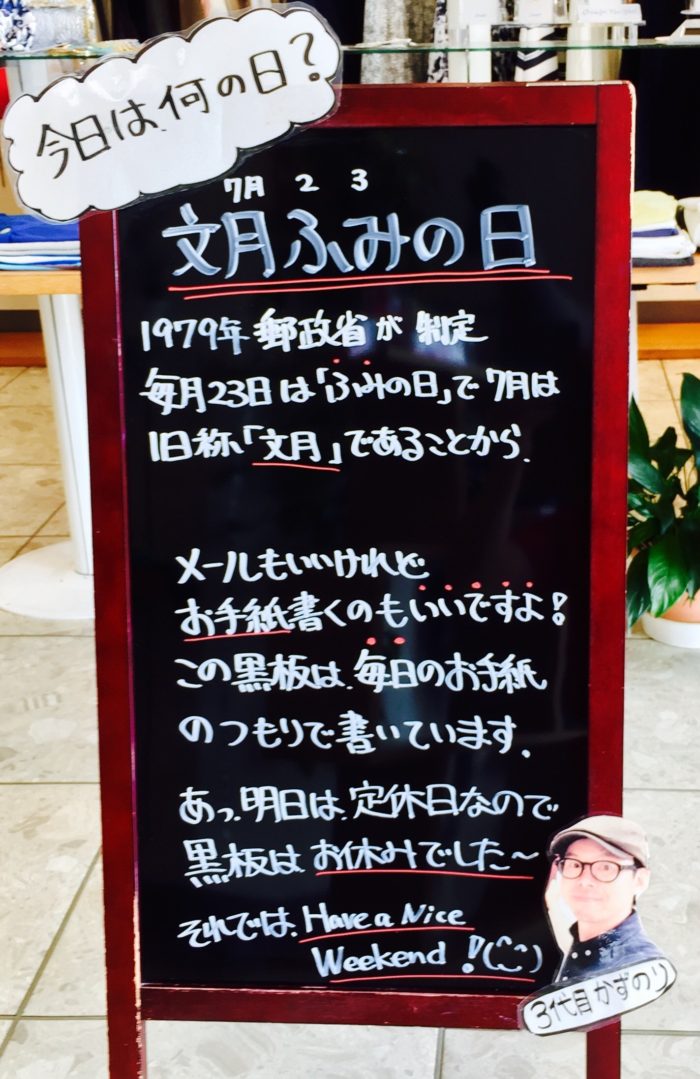 今日は何の日?
7月23
文月ふみの日
1979年郵政省が制定
毎月23日は「ふみの日」で7月は
旧称「文月」であることから.
メールもいいけれど
お手紙書くのもいいですよ!
この黒板は、毎日のお手紙
のつもりで書いています.
あっ、明日は、定休日なので
黒板は、お休みでした〜
それでは、Have a Nice
Weekend!(^‿^)
3代目かずのり